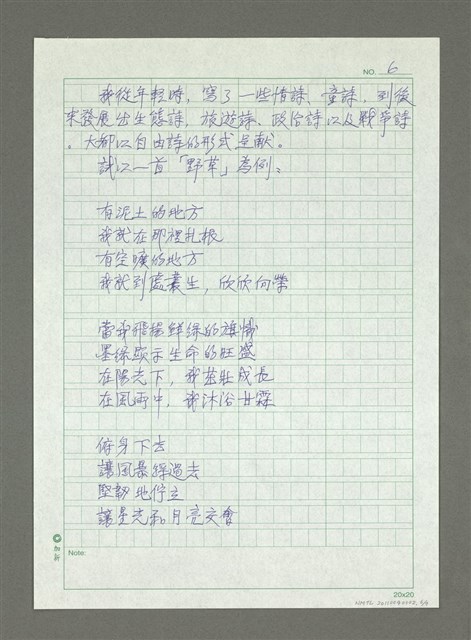 NO. 6
我從年輕時，寫了一些情詩、童詩，到後
來發展出生態詩、旅遊詩、政治詩以及戰爭詩
，大都以自由詩的形式呈献。
試以一首「野草」為例：
有泥土的地方
我就在那裡扎根
有空曠的地方
我就到處叢生，欣欣向榮
當我飛揚鮮綠的旗幟
墨綠顯示生命的旺盛
在陽光下，我茁壯成長
在風雨中，我沐浴甘霖
俯身下去
讓風暴踩過去
堅韌地佇立
讓星光和月亮交會
Note:
20x20